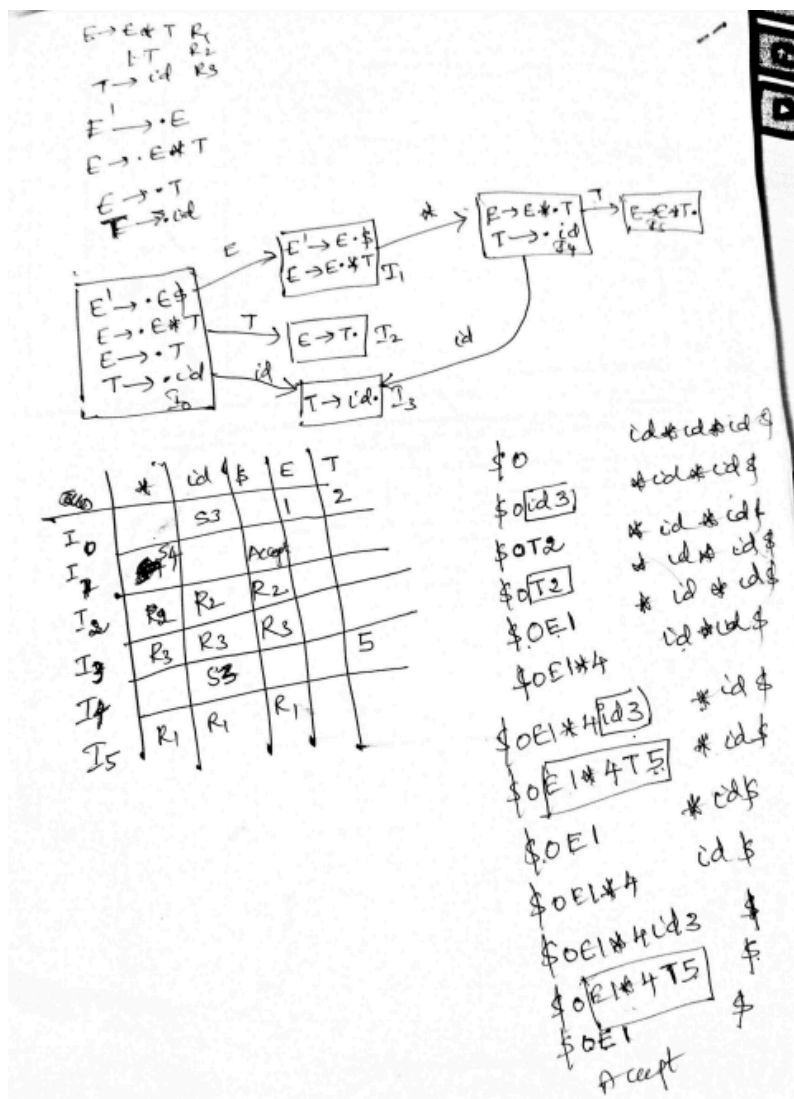 E → E * T R1
| T R2
T → id R3
E' → ·E
E → ·E*T
E → ·T
T → ·id
E' → ·E$
E → ·E*T
E → ·T
T → ·id
I0
E
E' → E·$
E → E·*T
I1
*
E → E*·T
T → ·id
I4
T
E→E*T·
I5
T
E → T· I2
id
T → id· I3
id
* id $ E T
I0 S3 1 2
I1 S4 Accept
I2 R2 R2 R2
I3 R3 R3 R3
I4 S3 5
I5 R1 R1 R1
$0 id*id*id$
$0id3 *id*id$
$0T2 *id*id$
$0T2 *id*id$
$0E1 *id*id$
$0E1*4 id*id$
$0E1*4id3 *id$
$0E1*4T5 *id$
$0E1 *id$
$0E1*4 id$
$0E1*4id3 $
$0E1*4T5 $
$0E1 $
Accept